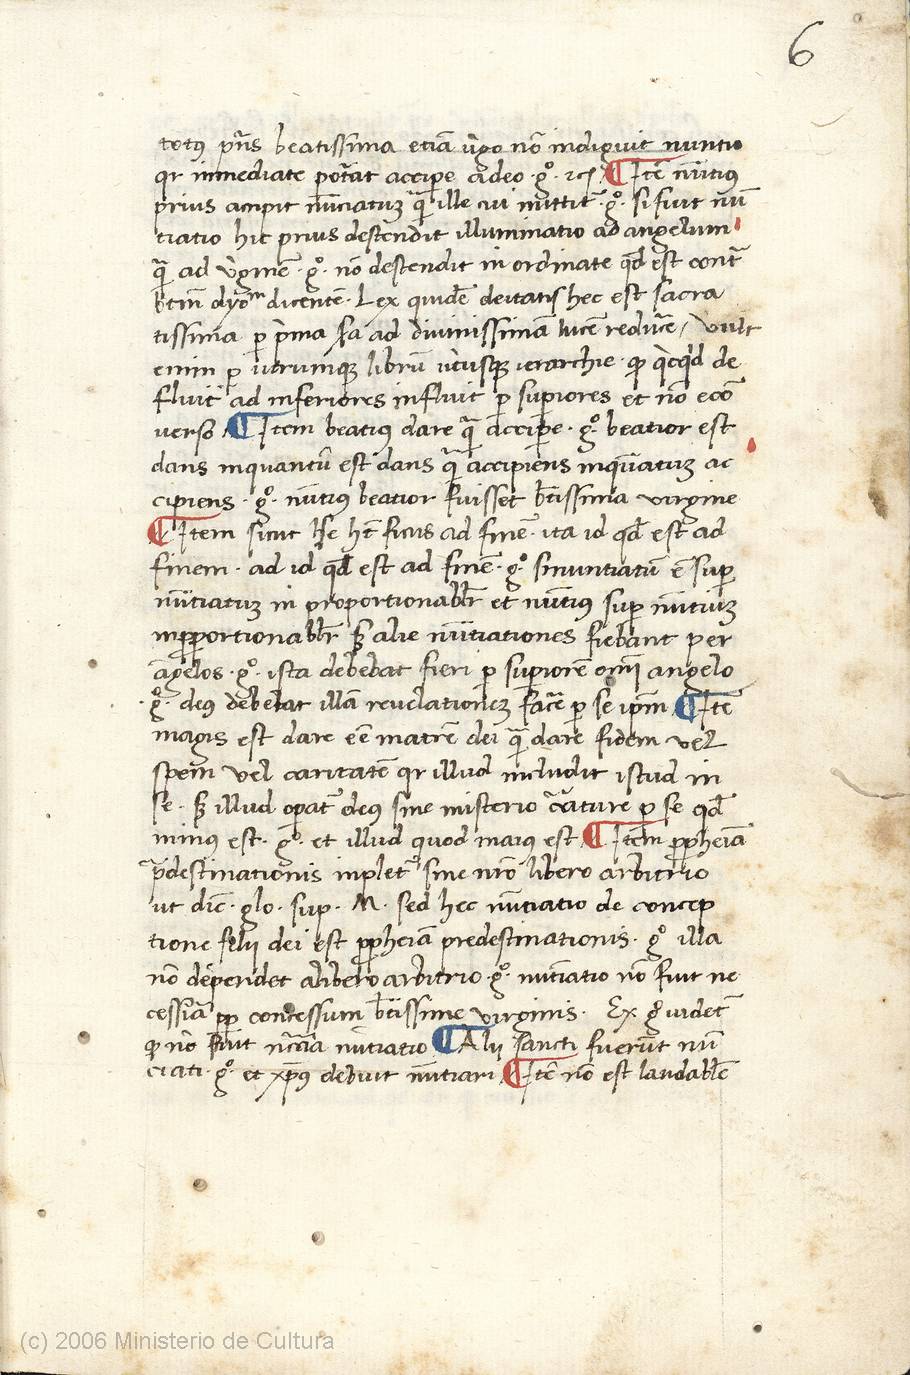 6
totꝰ pn̄s beatissima etiā ṽgo nō indiguit nuntio
qr inmediate pot̄at accipe adeo · gͦ · ⁊cꝫ ¶ Itē nūtiꝰ
prius accipit nūciatuꝫ q̄ ille cui mittit̄ · gͦ · si fuit nū
tiatio hic prius descendit illuminatio ad angelum
q̄ ad ṽginē · gͦ · nō descendit in ordinate qd̄ est cont̄
btm̄ dyoⁿ dicentē · Lex quidē deitatis hec est sacra
tissima ꝑ p̄ma sc̄a ad diuinissimā lucē reducē / vult
enim ꝑ utrumqꝫ librū utiusqꝫ ierarchie · ꝙ qͥcqͥd de
fluit ad inferiores influit ꝑ supiores et nō ecō
verso ¶ Item beatiꝰ dare q̄ accipe · gͦ · beatior est
dans inquantū est dans q̄ accipiens inquātuꝫ ac
cipiens · gͦ · nūtiꝰ beatior fuisset btissima virgine
¶ Item sicut hc̄ finis ad finē ita id qd̄ est ad
finem · ad id qd̄ est ad finē · gͦ · si nuntiatū ē sup
nūtiatuꝫ in proportionabłr et nūtiꝰ sup nūtiuꝫ
inꝓportionabłr sꝫ alie nūtiationes fiebant per
āgelos · gͦ · ista debebat fieri ꝑ supiorē omī angelo
· gͦ · deꝰ debebat illā reuelationeꝫ facē ꝑ se ip̄m ¶ Itē
magis est dare eē matrē dei q̄ dare fidem vel
spem vel caritatē qr illud includit istud in
se · sꝫ illud opat̄ deꝰ sine misterio c̄ature ꝑ se qd̄
minus est · gͦ · et illud quod maiꝰ est ¶ Itē ꝓpheīa
p̄destinationis inplet̄ sine nr̄o libero arbitrio
ut dic̄ · glo · sup · M · sed hec nūtiatio de concep
tione filii dei est ꝓpheīa predestinationis · gͦ illa
nō dependet a libero arbitrio · gͦ · nutiatio nō fuit ne
cessīa ꝓp consessum btissime virginis · Ex gͦ videt̄
ꝙ nō fuit nc̄c̄ia nūtiatio ¶ Alii sancti fuerūt nū
ciati · gͦ · et xp̄ꝰ debuit nūtiari ¶ Itē nō est laudablē
(c) 2006 Ministerio de Cultura